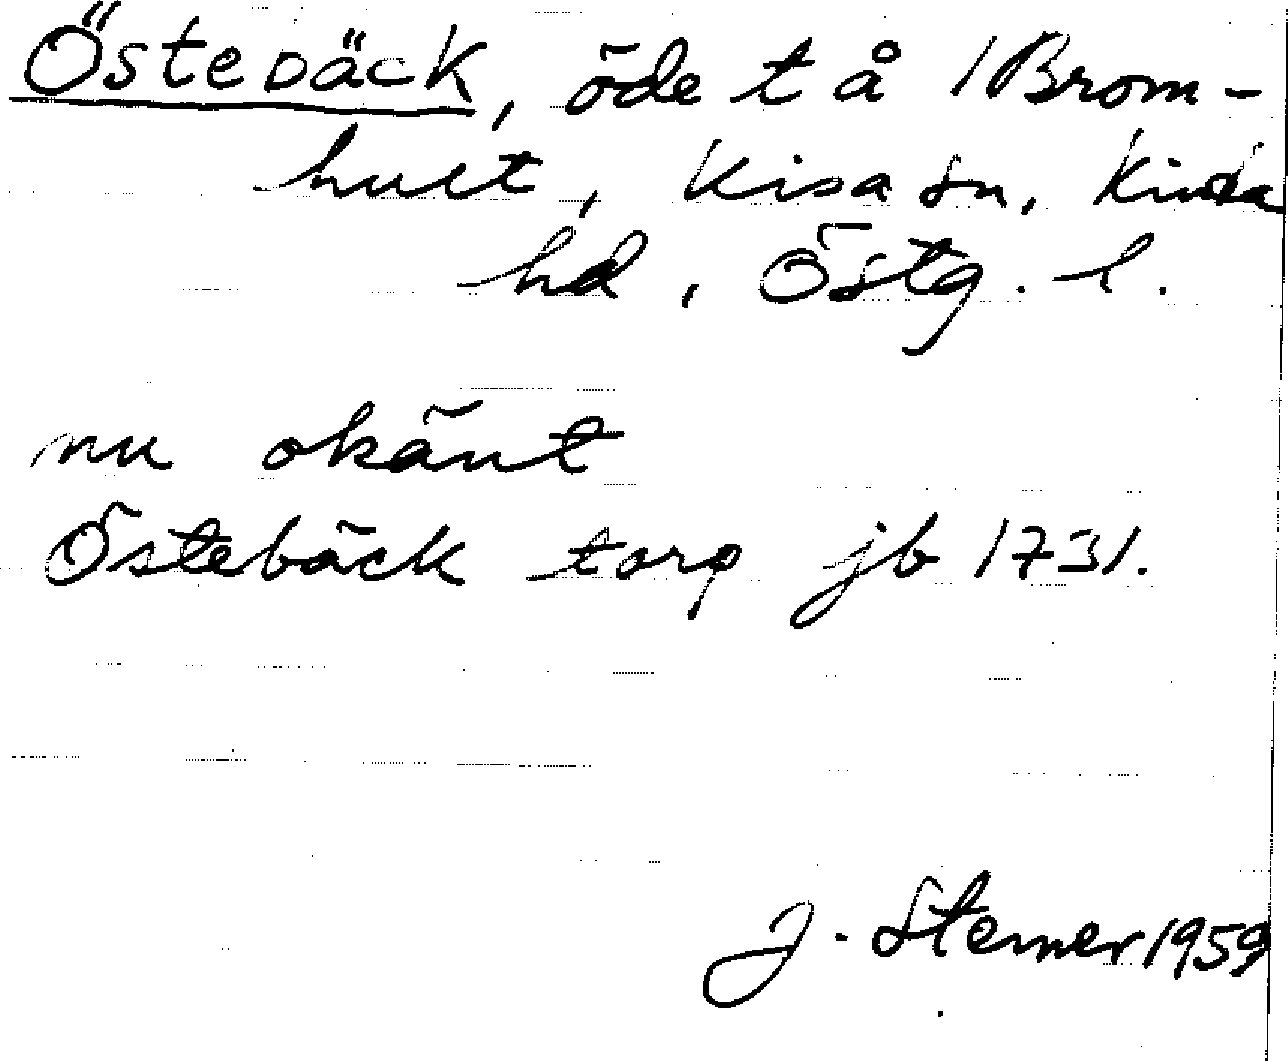 Östebäck, öde t å Brom-
hult, Kisa sn, Kinda
hd, Östg. l.
nu okänt
Östebäck torp jb 1731.
J. Sterner 1959